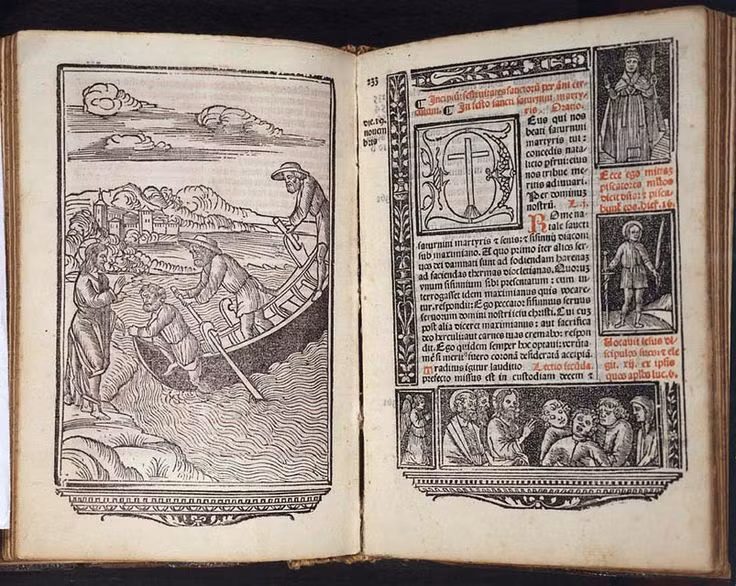 233
¶ Incipiũt festiuitates sanctorũ per ãni cir
culum. ¶ In festo sancti saturnini marty
ris. Oratio.
die.29.
nouem
bris
Deus qui nos
beati saturnini
martyris tui
concedis nata
licio perfrui: eius
nos tribue me
ritis adiuuari.
Per dominum
nostrũ. L. j.
Rome na
tale sancti
saturnini martyris ⁊ senis: ⁊ sisinnij diaconi
sub maximiano. A quo primo iter alios ser
uos dei damnati sunt ad fodiendam harenam
ad faciendas thermas diocletianas. Quorum
vnum sisinnium sibi presentatum: cum in
terrogasset idem maximianus quis vocare
tur, respondit: Ego peccator sisinnius seruus
seruorum domini nostri iesu christi. Cui cum
post alia diceret maximianus: aut sacrifica
deo herculi aut carnes tuas cremabo: respon
dit. Ego quidem semper hoc optaui: verũta
mẽ si meritꝰ fuero coronã desideratã accipiã.
Traditus igitur laudicio Lectio secũda.
prefecto missus est in custodiam decem ⁊
Ecce ego mittaʒ
piscatores mltos
dicit dñs: ⁊ pisca
bunt eos. hief. 16.
Uocauit iesus di
scipulos suos: ⁊ ele
git. xij. ex ipsis
quos apłos luc. 6.